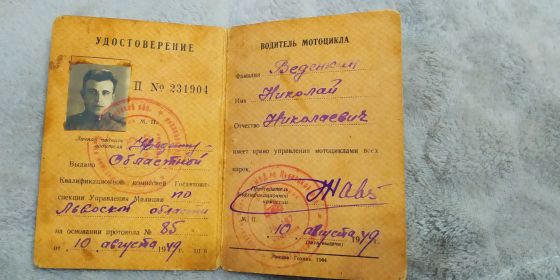 УДОСТОВЕРЕНИЕ
П № 231904
М. П.
Личная подпись
водителя
Выдано Областной
Квалификационной комиссией Госавтоин-
спекции Управления Милиции по
Львоской области
на основании протокола № 85
от 10 августа 1949
ВОДИТЕЛЬ МОТОЦИКЛА
Фамилия Веденкин
Имя Николай
Отчество Николаевич
имеет право управления мотоциклами всех
марок.
Председатель
квалификационной
комиссии
М. П.
10 августа 1949
(дата выдачи)